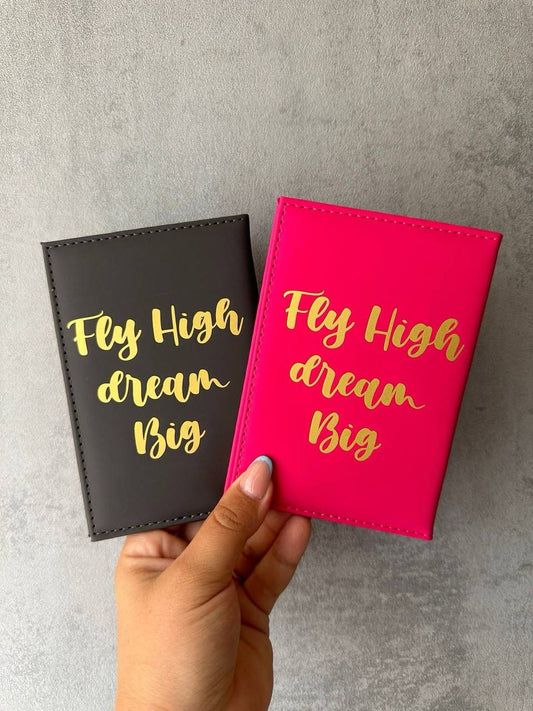 Fly High
dream
Big
Fly High
dream
Big